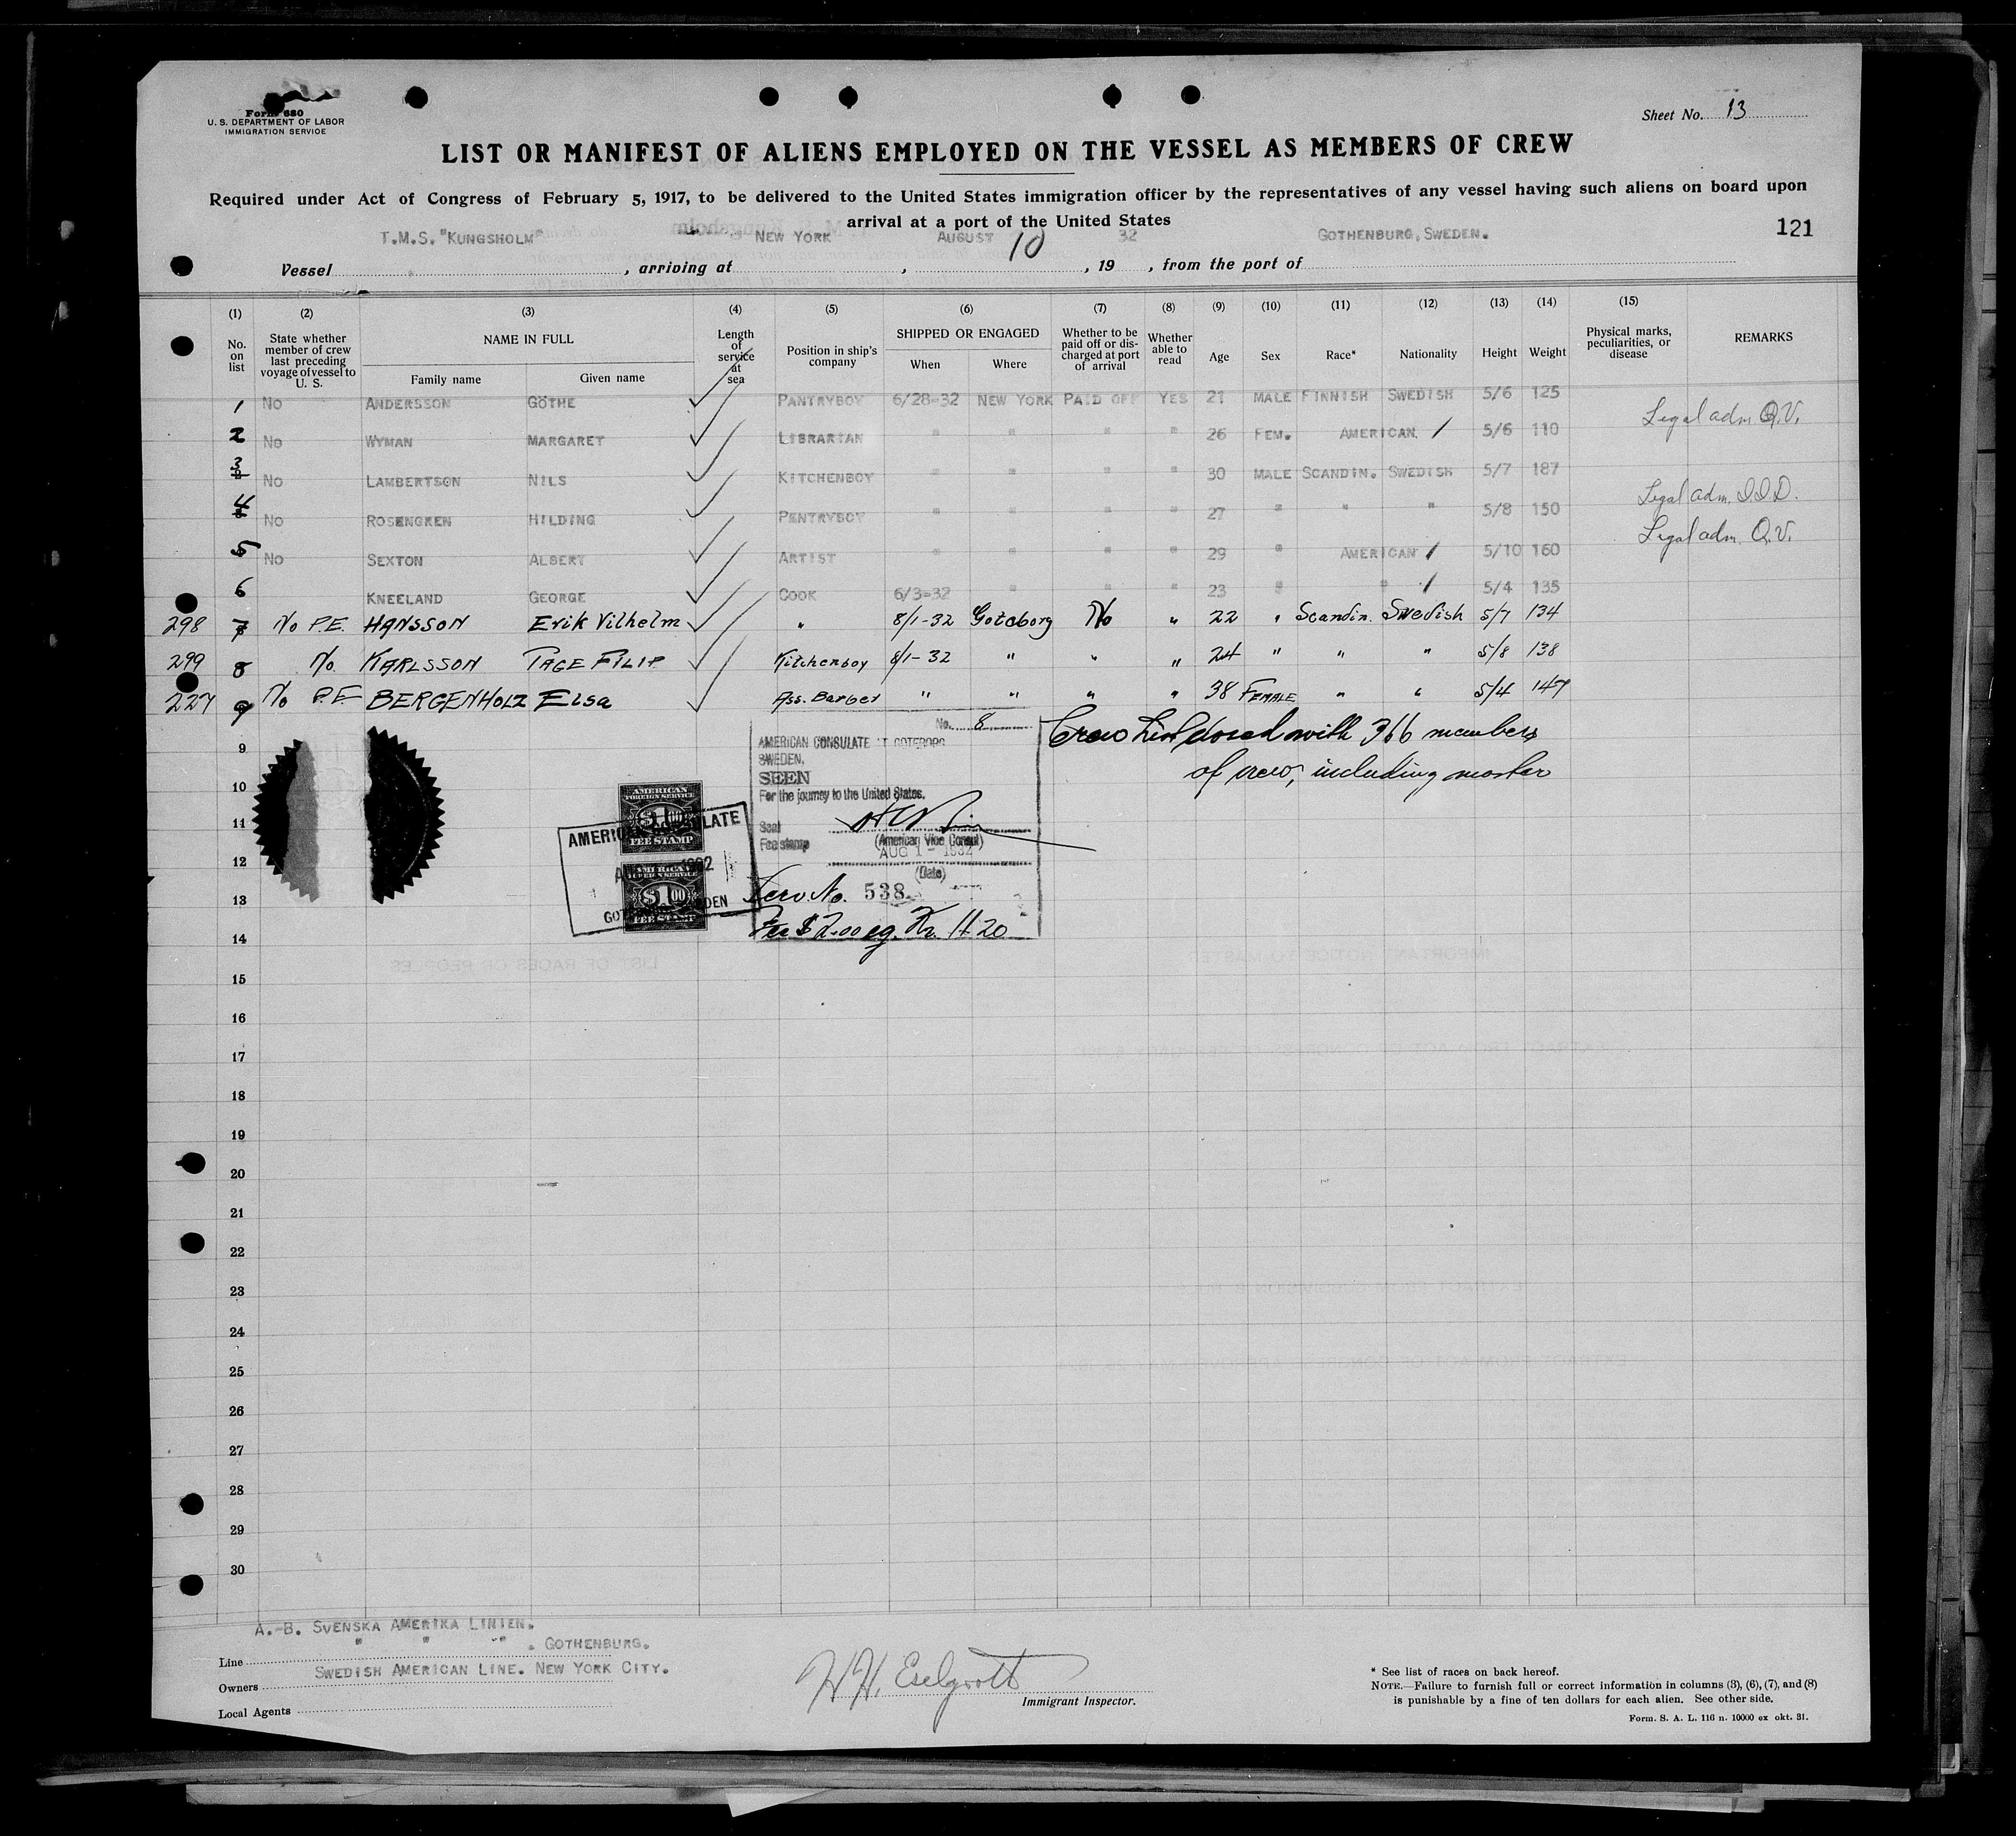 Form 680
U. S. DEPARTMENT OF LABOR
IMMIGRATION SERVICE
Sheet No. 13
LIST OR MANIFEST OF ALIENS EMPLOYED ON THE VESSEL AS MEMBERS OF CREW
Required under Act of Congress of February 5, 1917, to be delivered to the United States immigration officer by the representatives of any vessel having such aliens on board upon
arrival at a port of the United States
121
Vessel T.M.S. "KUNGSHOLM", arriving at NEW YORK, AUGUST 10, 1932, from the port of GOTHENBURG, SWEDEN.
(1) (2) (3) (4) (5) (6) (7) (8) (9) (10) (11) (12) (13) (14) (15)
No. on list
State whether member of crew last preceding voyage of vessel to U. S.
NAME IN FULL
Family name
Given name
Length of service at sea
Position in ship's company
SHIPPED OR ENGAGED
When
Where
Whether to be paid off or discharged at port of arrival
Whether able to read
Age
Sex
Race*
Nationality
Height
Weight
Physical marks, peculiarities, or disease
REMARKS
1 NO ANDERSSON GÖTHE PANTRYBOY 6/28-32 NEW YORK PAID OFF YES 21 MALE FINNISH SWEDISH 5/6 125 Legal adm Q.V.
2 NO WYMAN MARGARET LIBRARIAN " " " " 26 FEM. AMERICAN / 5/6 110
3 NO LAMBERTSON NILS KITCHENBOY " " " " 30 MALE SCANDIN. SWEDISH 5/7 187 Legal adm.
4 NO ROSENGREN HILDING PENTRYBOY " " " " 27 " " " 5/8 150 Legal adm. Q.V.
5 NO SEXTON ALBERT ARTIST " " " " 29 " AMERICAN / 5/10 160
6 KNEELAND GEORGE COOK 6/3-32 " " " 23 " " / 5/4 135
298 7 No P.E. HANSSON Erik Vilhelm " 8/1-32 Göteborg No " 22 " Scandin. Swedish 5/7 134
299 8 No. KARLSSON TAGE FILIP Kitchenboy 8/1-32 " " " 24 " " " 5/8 138
227 9 No P.E. BERGENHOLZ Elsa Ass. Barber " " " " 38 FEMALE " " 5/4 147
Crew List closed with 366 members
of crew, including master
No. 8
AMERICAN CONSULATE AT GOTEBORG
SWEDEN.
SEEN
For the journey to the United States.
Seal
Fee stamp
(American Vice Consul)
AUG 1 - 1932
(Date)
Serv. No. 538
Fee $2.00 eq. Kr. 11.20
AMERICAN
FOREIGN SERVICE
$1.00
FEE STAMP
AMERICAN
FOREIGN SERVICE
$1.00
FEE STAMP
AMERICAN CONSULATE
1932
GOTEBORG, SWEDEN
9
10
11
12
13
14
15
16
17
18
19
20
21
22
23
24
25
26
27
28
29
30
A.-B. SVENSKA AMERIKA LINIEN.
Line " " " . GOTHENBURG.
Owners SWEDISH AMERICAN LINE. NEW YORK CITY.
Local Agents
Immigrant Inspector.
* See list of races on back hereof.
NOTE.—Failure to furnish full or correct information in columns (3), (6), (7), and (8)
is punishable by a fine of ten dollars for each alien. See other side.
Form. S. A. L. 116 n. 10000 ex okt. 31.